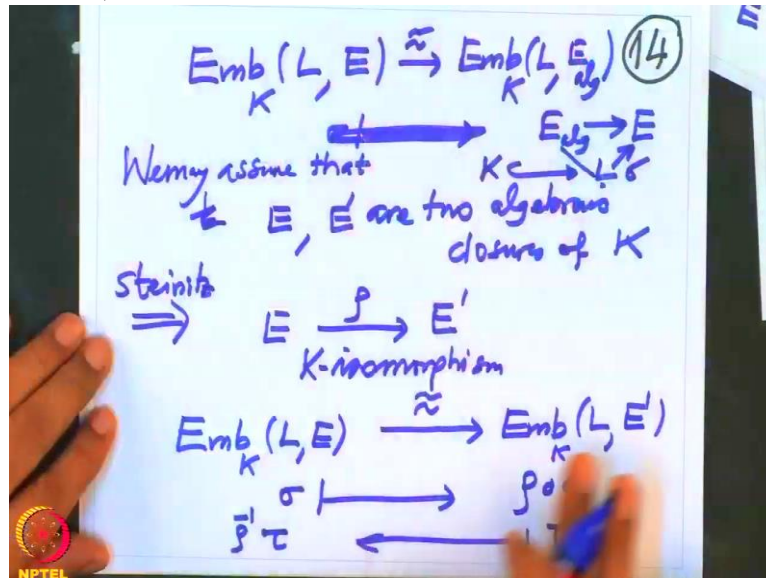 Emb_K (L, E) ≈→ Emb_K (L, E_alg) (14)
E_alg → E
We may assume that K ↪ L σ
E, E' are two algebraic
closures of K
Steinitz
⇒ E —ρ→ E'
K-isomorphism
Emb_K (L, E) ≈→ Emb_K (L, E')
σ ↦ ρ
ρ⁻¹ τ ←
NPTEL